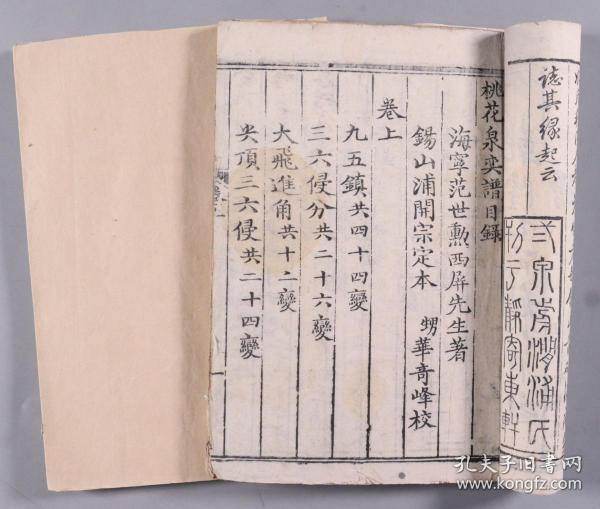 誌其緣起云
桃花泉奕譜目錄
海寧范世勳西屏先生著
錫山浦開宗定本 甥華奇峰校
卷上
九五鎮共四十四變
三六侵分共二十六變
大飛進角共十二變
尖頂三六侵共二十四變
孔夫子旧书网
www.kongfz.com